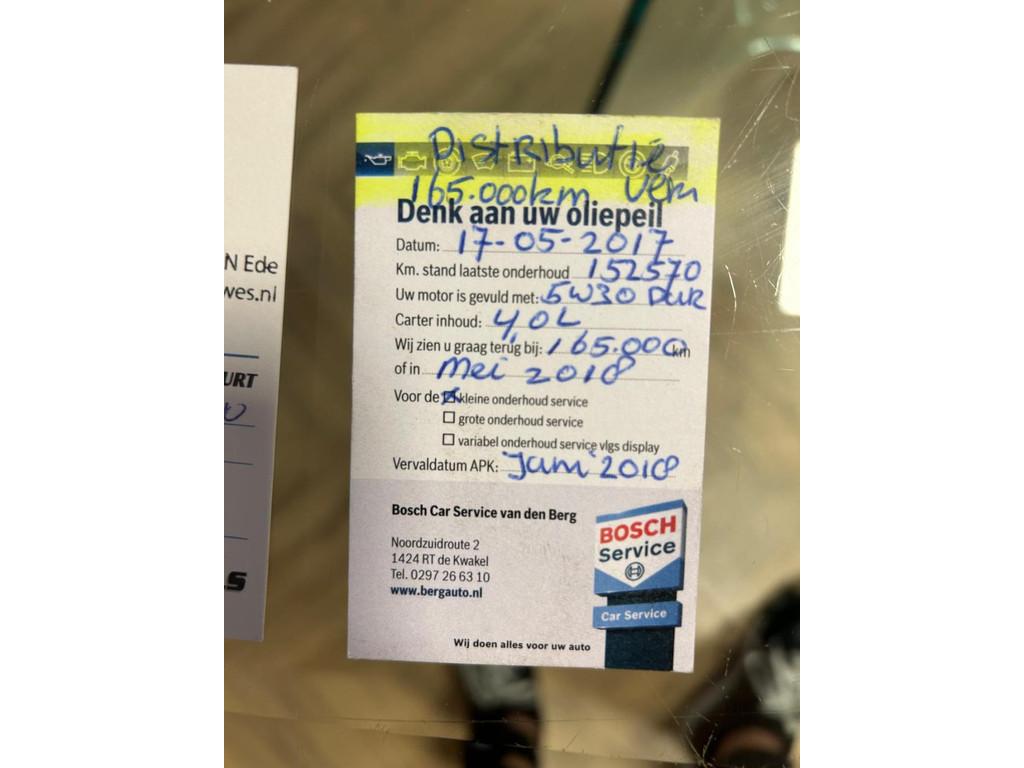 N Ede
wes.nl
URT
LS
Distributie
165.000km Vern
Denk aan uw oliepeil
Datum: 17-05-2017
Km. stand laatste onderhoud 152570
Uw motor is gevuld met: 5W30
Carter inhoud: 4,0L
Wij zien u graag terug bij: 165.000 km
of in Mei 2018
Voor de kleine onderhoud service
grote onderhoud service
variabel onderhoud service vlgs display
Vervaldatum APK: 2018
Bosch Car Service van den Berg
Noordzuidroute 2
1424 RT de Kwakel
Tel. 0297 26 63 10
www.bergauto.nl
BOSCH
Service
Car Service
Wij doen alles voor uw auto